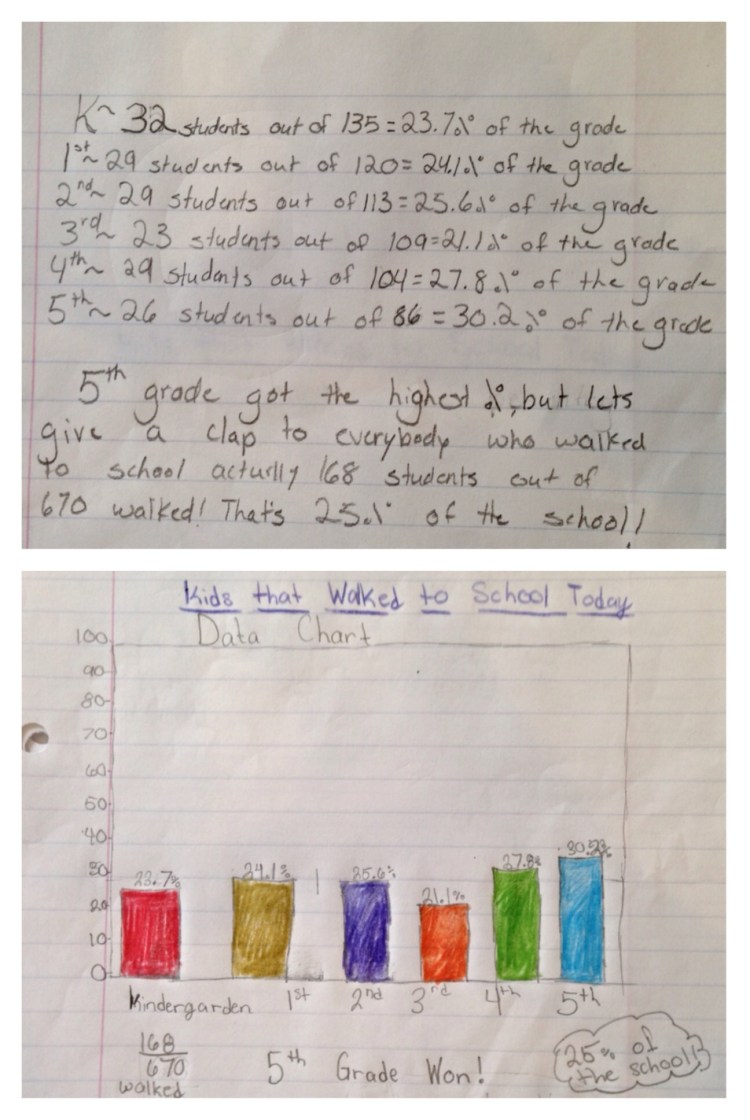 K~ 32 students out of 135=23.7% of the grade
1st~ 29 students out of 120= 24.1% of the grade
2nd~ 29 students out of 113=25.6% of the grade
3rd~ 23 students out of 109=21.1% of the grade
4th~ 29 students out of 104=27.8% of the grade
5th~ 26 students out of 86=30.2% of the grade
5th grade got the highest %, but lets
give a clap to everybody who walked
to school acturlly 168 students out of
670 walked! That's 25% of the school!
Kids that Walked to School Today
Data Chart
100
90
80
70
60
50
40
30
20
10
0
23.7%
24.1%
25.6%
21.1%
27.8%
30.2%
Kindergarden 1st 2nd 3rd 4th 5th
168
670
walked
5th Grade Won!
25% of
the school!